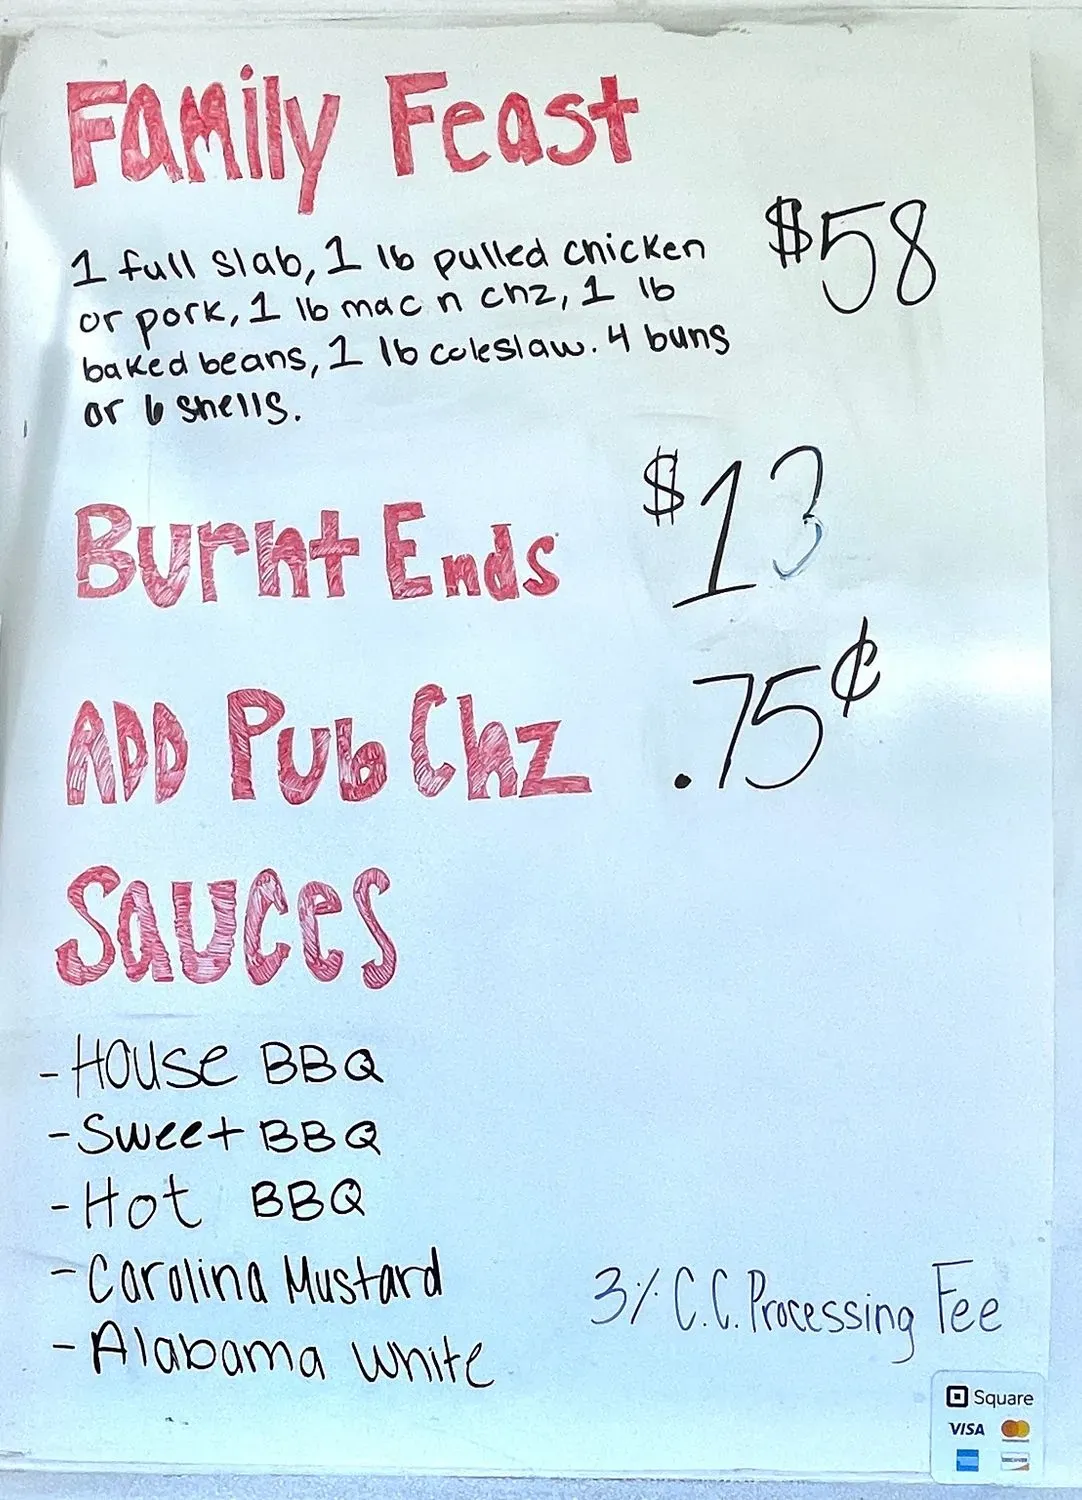 Family Feast
$58
1 full slab, 1 lb pulled chicken
or pork, 1 lb mac n chz, 1 lb
baked beans, 1 lb coleslaw. 4 buns
or 6 shells.
Burnt Ends $13
ADD Pub Chz .75¢
Sauces
- House BBQ
- Sweet BBQ
- Hot BBQ
- Carolina Mustard
- Alabama White
3% C.C. Processing Fee
Square
VISA
DISCOVER